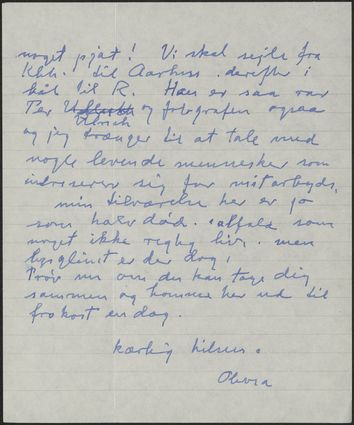 noget pjat! Vi skal sejle fra
Kbh. til Aarhus. derefter i
bil til R. Han er saa rar
Per Ulrich og fotografen ogsaa
og jeg trænger til at tale med
nogle levende mennesker som
interesserer sig for mit arbejds.
min tilværelse her er jo
som halv død. ialfald som
noget ikke rigtig liv. men
lysglimt er der dog!
Prøv nu om du kan tage dig
sammen og komme her ud til
frokost en dag.
kærlig hilsen.
Olivia